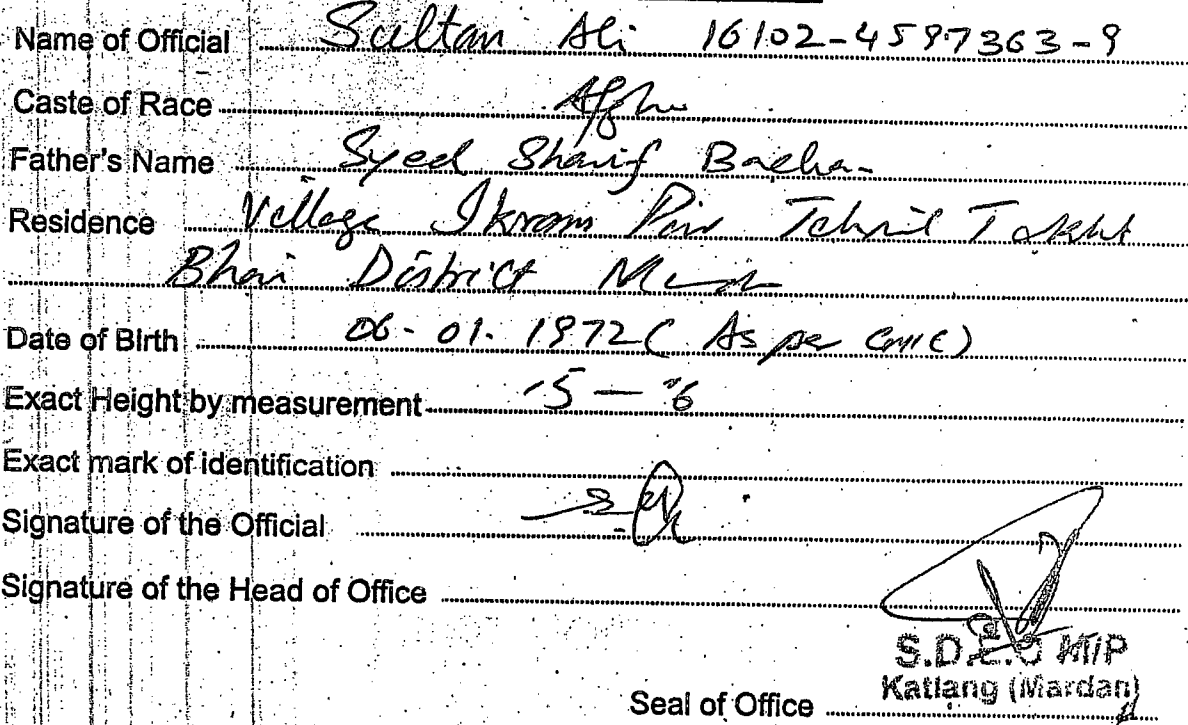 Name of Official Sultan Ali 16102-4597363-9
Caste of Race
Father's Name Syed Sharif Bacha
Residence Village Ikram Tehsil Takht
Bhai District
Date of Birth 06-01.1972 ( As per CNIC)
Exact Height by measurement 5 - 6
Exact mark of identification
Signature of the Official
Signature of the Head of Office
S.D.E.O M/P
Katlang (Mardan)
Seal of Office